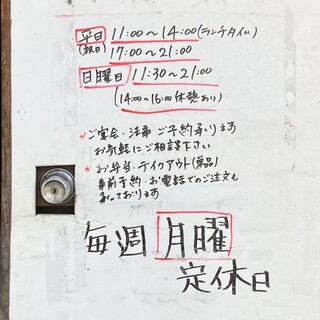 平日 11:00～14:00(ランチタイム)
(祝日) 17:00～21:00
日曜日 11:30～21:00
(14:00～16:00休憩あり)
ご宴会・法事 ご予約承ります
お気軽にご相談下さい
お弁当・テイクアウト(単品)
事前予約・お電話でのご注文も
承っております
毎週 月曜
定休日